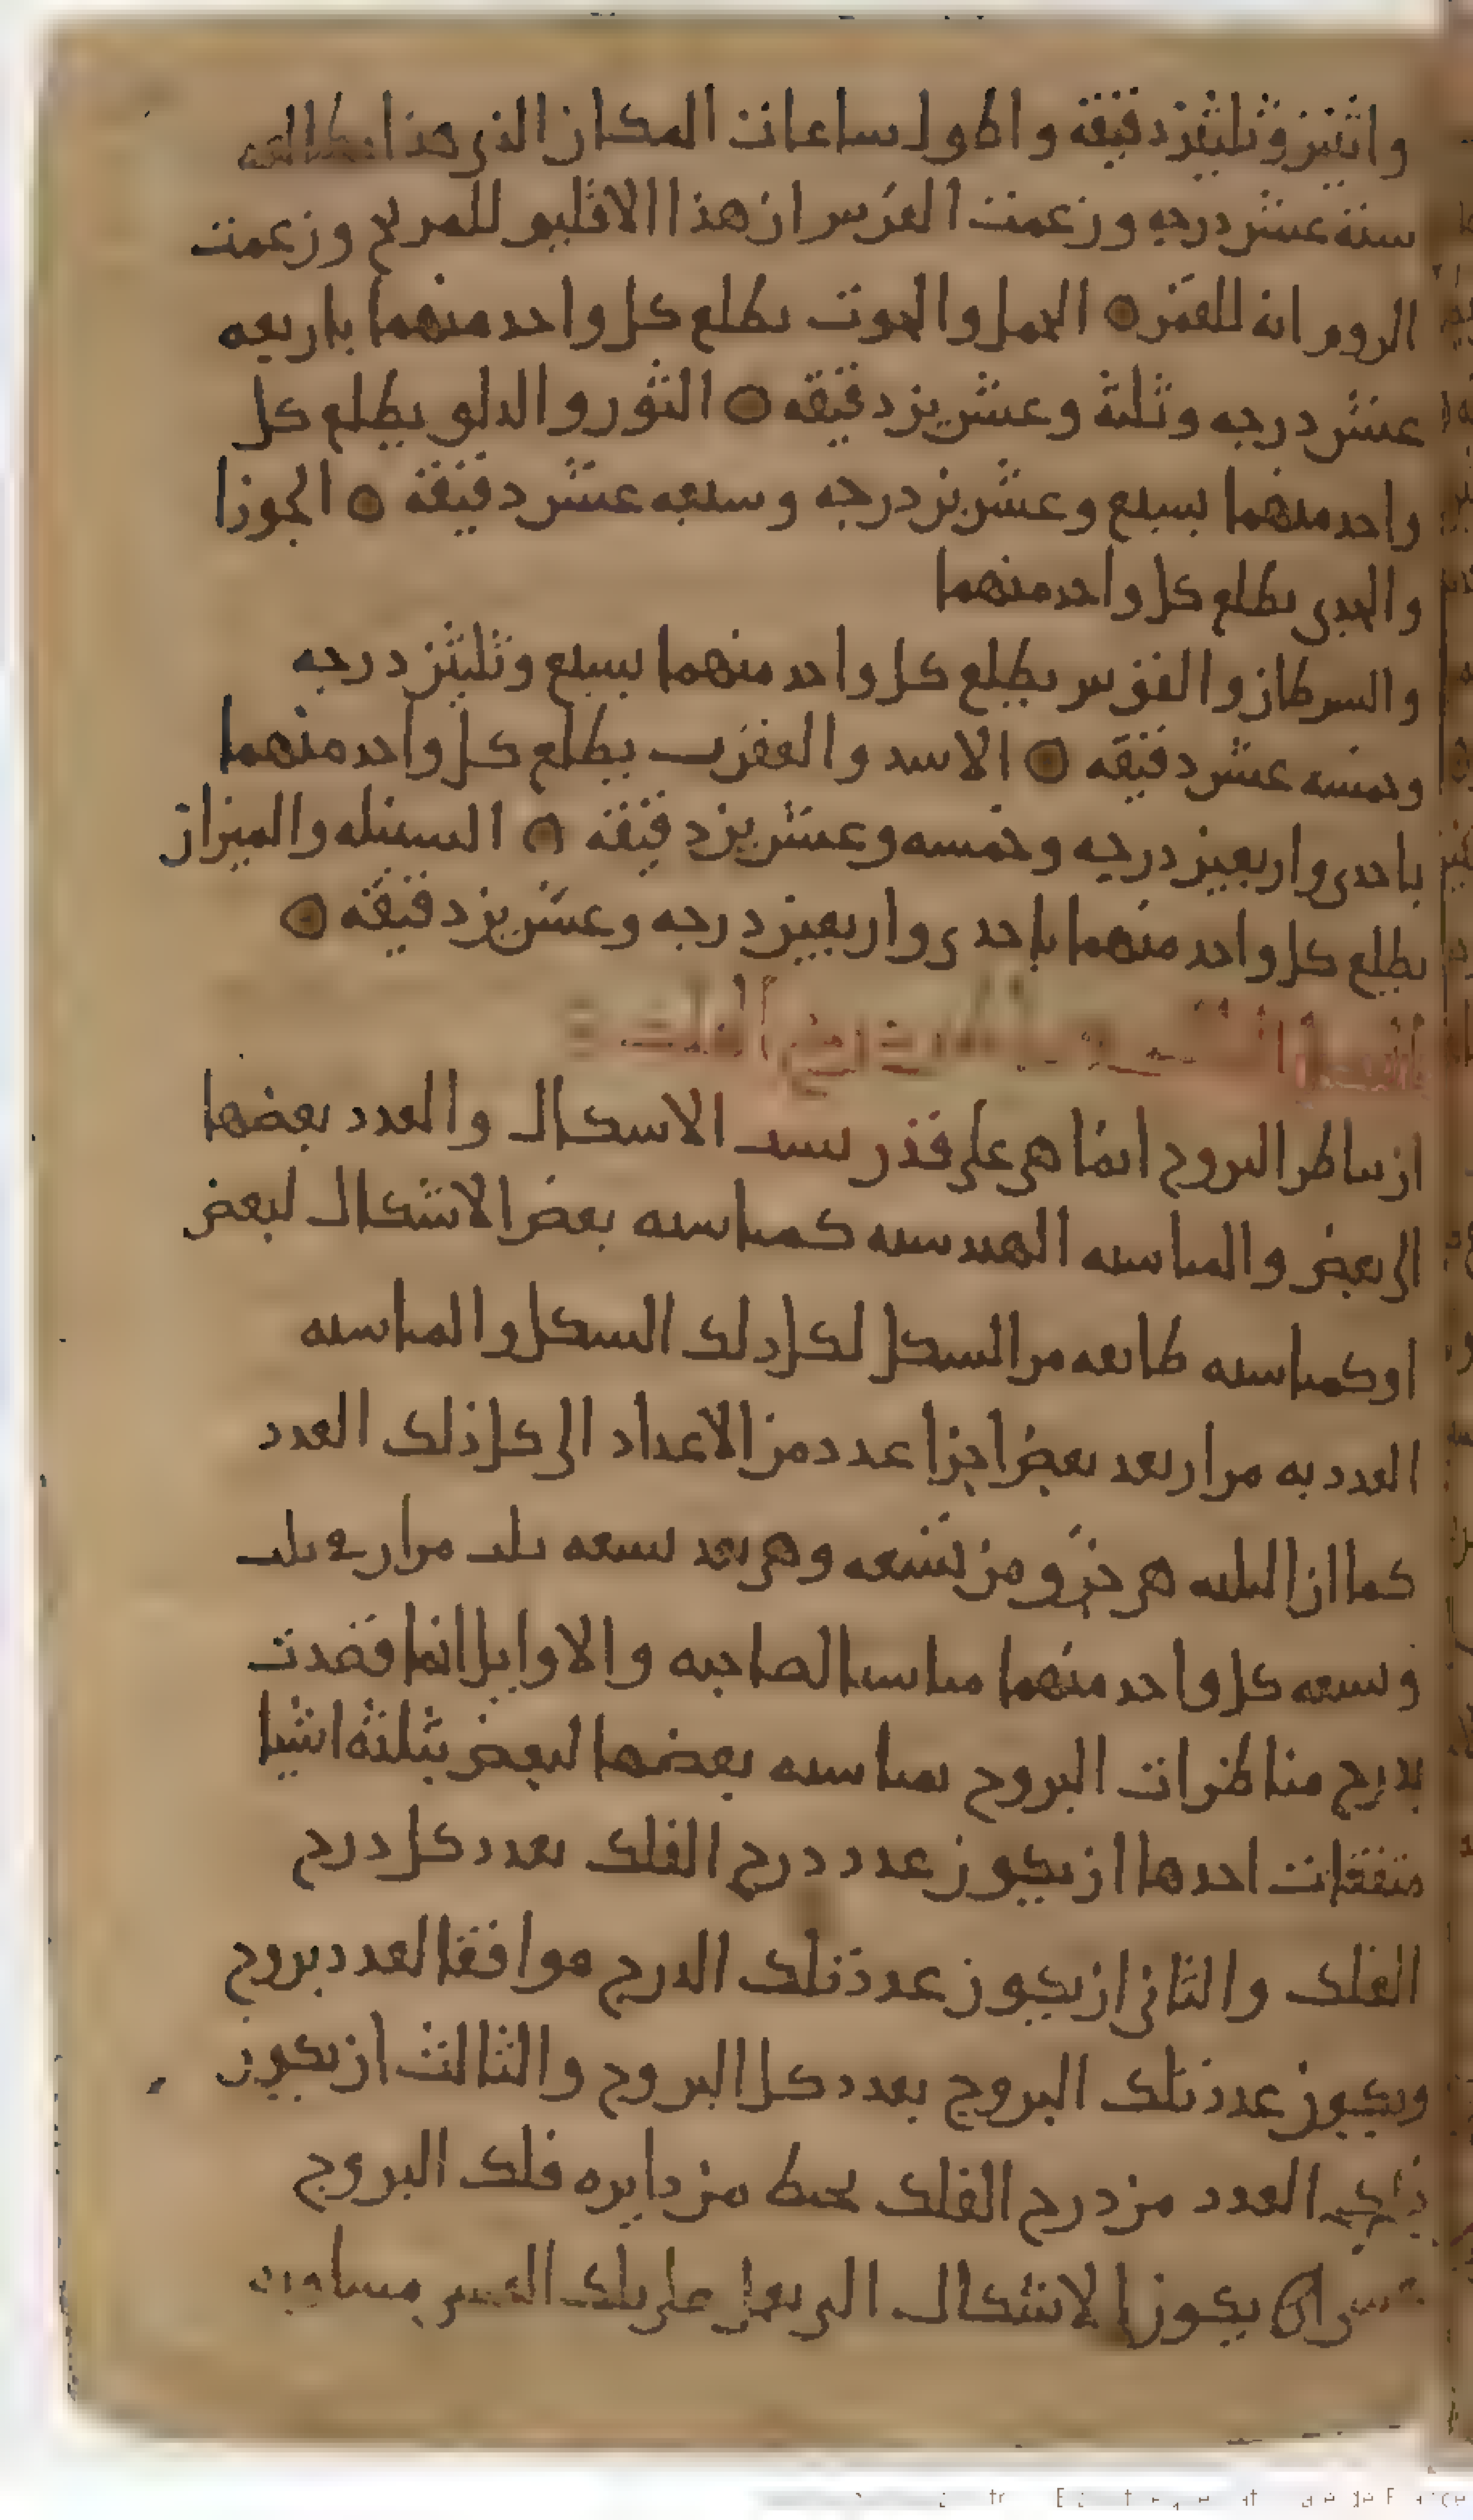 واثنين وثلثين دقيقة واطول ساعات المكان الذى هذا
ستة عشر درجه وزعمت الفرس ان هذا الاقليم للمريخ وزعمت
الروم انه للقمر ○ الحمل والحوت يطلع كل واحد منهما باربعه
عشر درجه وثلثة وعشرين دقيقه ○ الثور والدلو يطلع كل
واحد منهما بسبع وعشرين درجه وسبعه عشر دقيقة ○ الجوزا
والجدى يطلع كل واحد منهما
والسرطان والقوس يطلع كل واحد منهما بسبع وثلثين درجه
وخمسه عشر دقيقه ○ الاسد والعقرب يطلع كل واحد منهما
باحدى واربعين درجه وخمسه وعشرين دقيقه ○ السنبله والميزان
يطلع كل واحد منهما باحدى واربعين درجه وعشرين دقيقه ○
ان تناظر البروج انما هى على قدر نسب الاشكال والعدد بعضها
الى بعض والمناسبه الهندسيه كمناسبه بعض الاشكال لبعض
او كمناسبه طائفه من الشكل لكل ذلك الشكل والمناسبه
العدديه من ان يعد بعض اجزا عدد من الاعداد الى كل ذلك العدد
كما ان الثلثه هى جزو من تسعه وهى تعد تسعه ثلث مرار
وتسعه كل واحد منهما مناسبا لصاحبه والاوايل انما قصدت
بدرج مناظرات البروج بمناسبه بعضها لبعض بثلثة اشيا
متفقات احدها ان يكون عدد درج الفلك بعدد كل درج
الفلك والثانى ان يكون عدد تلك الدرج موافقا لعدد بروج
ويكون عدد تلك البروج بعدد كل البروج والثالث ان يكون
ذلك العدد من درج الفلك يحيط من دايره فلك البروج
يكون الاشكال التى تعمل على تلك القسى